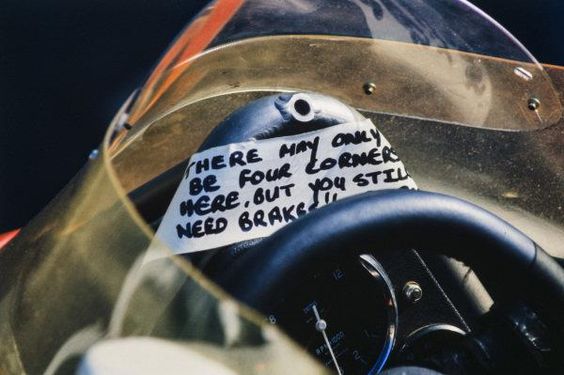 THERE MAY ONLY
BE FOUR CORNERS
HERE, BUT YOU STILL
NEED BRAKES!!
12
8
2
RPM